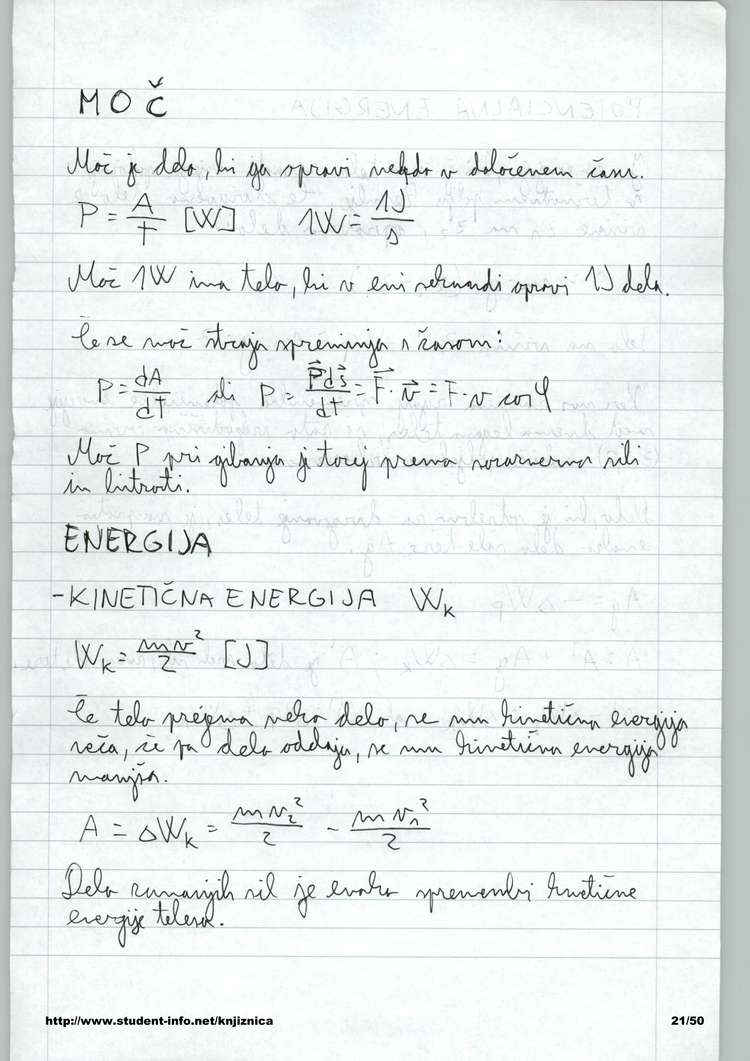 MOČ
Moč je delo, ki ga opravi nekdo v določenem času.
P = A/t [W] 1W = 1J/s
Moč 1W ima telo, ki v eni sekundi opravi 1J dela.
Če se moč stroja spreminja s časom:
P = dA/dt ali P = F⃗ds⃗/dt = F⃗ · v⃗ = F · v cos φ
Moč P pri gibanju je torej premo sorazmerna sili
in hitrosti.
ENERGIJA
- KINETIČNA ENERGIJA Wₖ
Wₖ = mv²/2 [J]
Če telo prejema neko delo, se mu kinetična energija
veča, če pa delo oddaja, se mu kinetična energija
manjša.
A = ΔWₖ = mv₂²/2 - mv₁²/2
Delo zunanjih sil je enako spremembi kinetične
energije telesa.
http://www.student-info.net/knjiznica 21/50